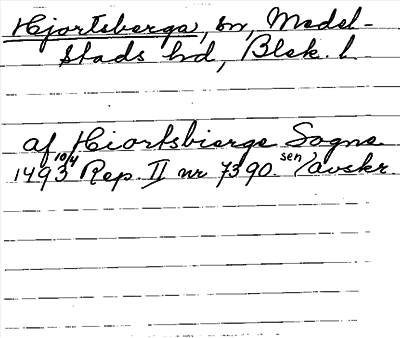 Hjortsberga, sn, Medel-
stads hd, Blek. l.
af Hiortsbierge Sogne
1493 10/4 Rep. II nr 7390. sen avskr.